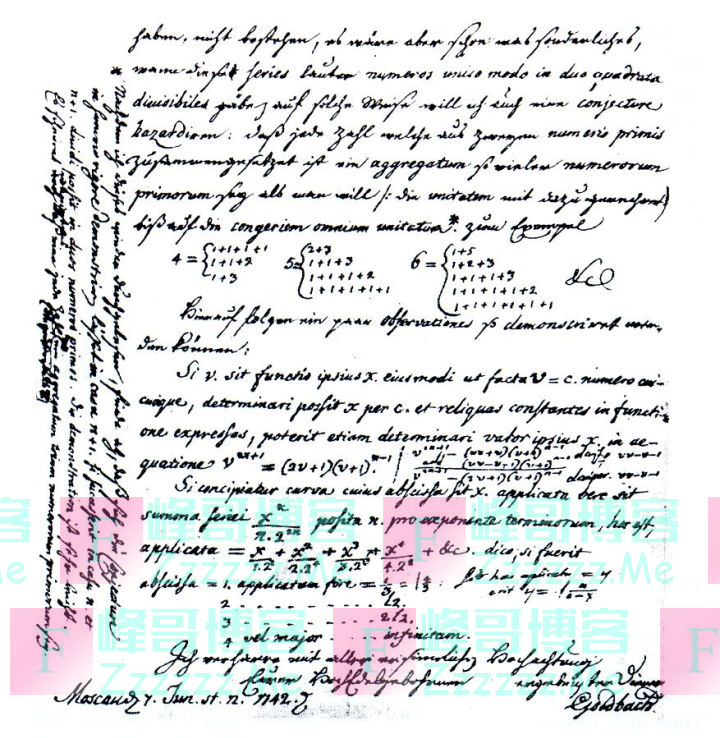 haben, nicht bestehen, es wäre aber schon was sonderliches,
wann diese series lauter numeros unico modo in duo quadrata
divisibiles gäbe, auf solche Weise will ich auch eine conjecture
hazardiren: daß jede Zahl welche aus zweyen numeris primis
zusammengesetzet ist ein aggregatum so vieler numerorum
primorum sey als man will /: die unitatem mit dazu gerechnet)
biß auf die congeriem omnium unitatum.* zum Exempel
4 = { 1+1+1+1
1+1+2
1+3
5 = { 2+3
1+1+3
1+1+1+2
1+1+1+1+1
6 = { 1+5
1+2+3
1+1+1+3
1+1+1+1+2
1+1+1+1+1+1
&c
Hierauf folgen ein paar observationes so demonstriret wer-
den können:
Si v. sit functio ipsius x. eiusmodi ut facta v = c. numero cui-
cunque, determinari possit x per c. et reliquas constantes in functi-
one expressas, poterit etiam determinari valor ipsius x. in ae-
quatione v²ⁿ⁺¹ = (2v+1)(v+1)ⁿ⁻¹
Si concipiatur curva cuius abscissa sit x. applicata vero sit
summa seriei xⁿ/n.2²ⁿ posita n. pro exponente terminorum, hoc est,
applicata = x/1.2² + x²/2.2⁴ + x³/3.2⁶ + x⁴/4.2⁸ + &c. dico, si fuerit
abscissa = 1. applicatam fore = l 4/3
2 . . . . . . . . l2.
3 . . . . . . . . 2l2.
4 vel major . . . infinitam.
Ich verharre mit aller ersinnlichen Hochachtung
Euer Hochedelgebohrnen ergebenster Diener
Moscau d 7. Jun. st. n. 1742. Goldbach.
* Nachdem ich dieses wieder durchgelesen, finde ich, daß sich die conjecture
in summo rigore demonstriren lässet in casu n+1. si successerit in casu n et
n+1. dividi possit in duos numeros primos. Die demonstration ist sehr leicht.
Es scheinet wenigstens, daß eine jede Zahl ein aggregatum trium numerorum primorum sey
峰哥博客
Zzzzzz.Me
F